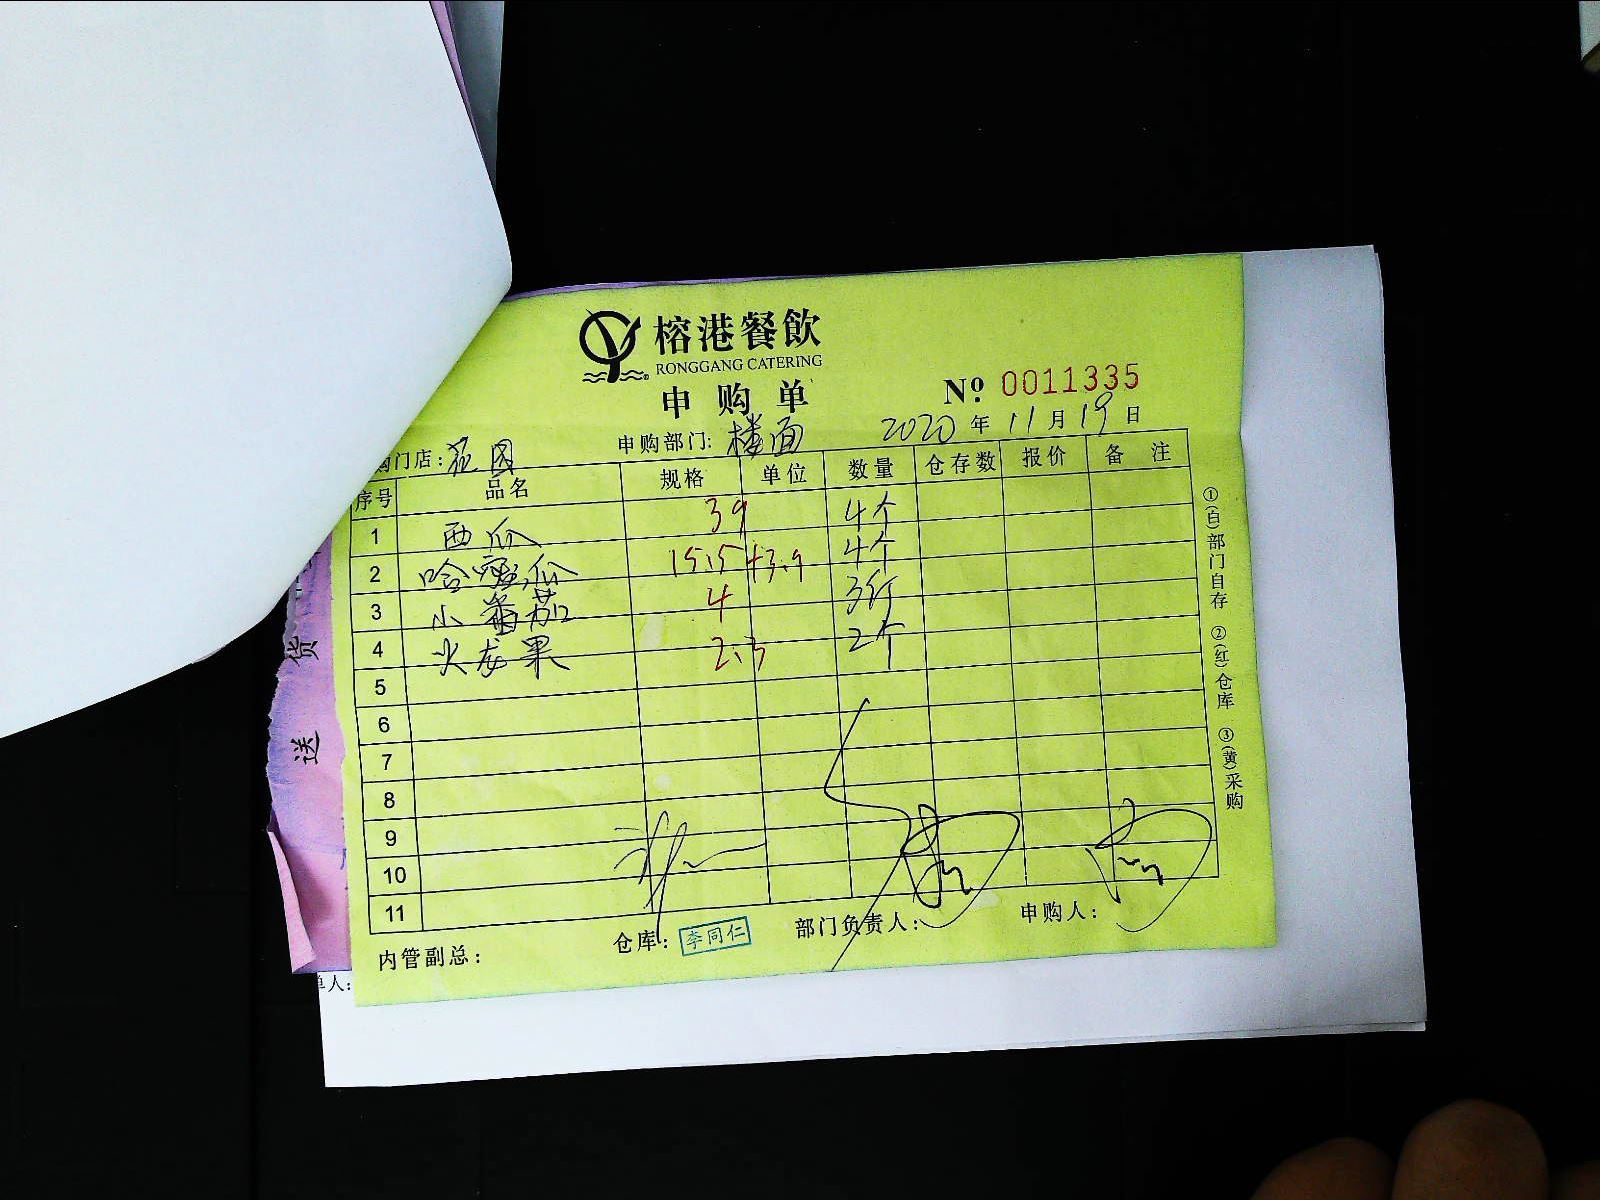 榕港餐飲
RONGGANG CATERING
申购单
№ 0011335
购门店: 花园 申购部门: 楼面 2020 年 11 月 19 日
序号 品名 规格 单位 数量 仓存数 报价 备注
1 西瓜 39 4个
2 哈密瓜 15.5 +3.9 4个
3 小番茄 4 3斤
4 火龙果 2.3 2个
5
6
7
8
9
10
11
内管副总: 仓库: 李同仁 部门负责人: 申购人:
①(白)部门自存 ②(红)仓库 ③(黄)采购
送 货
单人: